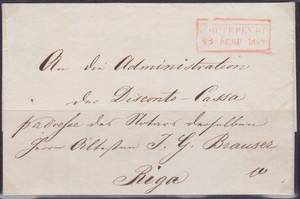 23 SEPT 18
An die Administration
der Disconto-Cassa
p adresse des Notars derselben
Herrn Ältesten J. G. Brauser
Riga